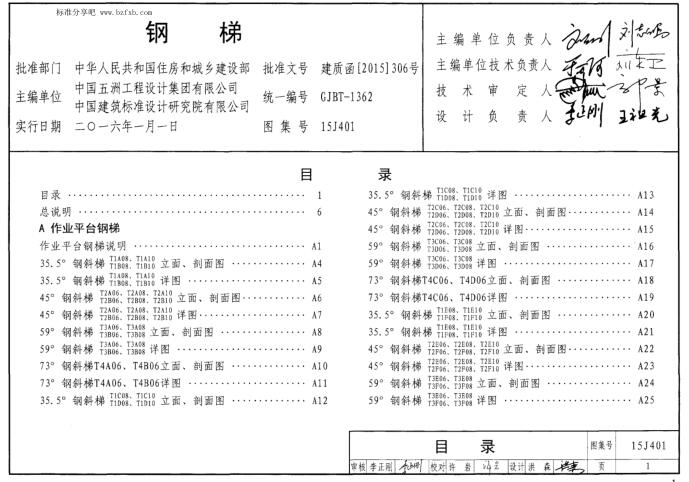 标准分享吧 www.bzfxb.com
钢 梯
批准部门 中华人民共和国住房和城乡建设部
主编单位 中国五洲工程设计集团有限公司
中国建筑标准设计研究院有限公司
实行日期 二〇一六年一月一日
批准文号 建质函[2015]306号
统一编号 GJBT-1362
图集号 15J401
主编单位负责人
主编单位技术负责人
技术审定人
设计负责人
目 录
目录 1
总说明 6
A 作业平台钢梯
作业平台钢梯说明 A1
35.5° 钢斜梯 T1A08、T1A10 T1B08、T1B10 立面、剖面图 A4
35.5° 钢斜梯 T1A08、T1A10 T1B08、T1B10 详图 A5
45° 钢斜梯 T2A06、T2A08、T2A10 T2B06、T2B08、T2B10 立面、剖面图 A6
45° 钢斜梯 T2A06、T2A08、T2A10 T2B06、T2B08、T2B10 详图 A7
59° 钢斜梯 T3A06、T3A08 T3B06、T3B08 立面、剖面图 A8
59° 钢斜梯 T3A06、T3A08 T3B06、T3B08 详图 A9
73° 钢斜梯T4A06、T4B06立面、剖面图 A10
73° 钢斜梯T4A06、T4B06详图 A11
35.5° 钢斜梯 T1C08、T1C10 T1D08、T1D10 立面、剖面图 A12
35.5° 钢斜梯 T1C08、T1C10 T1D08、T1D10 详图 A13
45° 钢斜梯 T2C06、T2C08、T2C10 T2D06、T2D08、T2D10 立面、剖面图 A14
45° 钢斜梯 T2C06、T2C08、T2C10 T2D06、T2D08、T2D10 详图 A15
59° 钢斜梯 T3C06、T3C08 T3D06、T3D08 立面、剖面图 A16
59° 钢斜梯 T3C06、T3C08 T3D06、T3D08 详图 A17
73° 钢斜梯T4C06、T4D06立面、剖面图 A18
73° 钢斜梯T4C06、T4D06详图 A19
35.5° 钢斜梯 T1E08、T1E10 T1F08、T1F10 立面、剖面图 A20
35.5° 钢斜梯 T1E08、T1E10 T1F08、T1F10 详图 A21
45° 钢斜梯 T2E06、T2E08、T2E10 T2F06、T2F08、T2F10 立面、剖面图 A22
45° 钢斜梯 T2E06、T2E08、T2E10 T2F06、T2F08、T2F10 详图 A23
59° 钢斜梯 T3E06、T3E08 T3F06、T3F08 立面、剖面图 A24
59° 钢斜梯 T3E06、T3E08 T3F06、T3F08 详图 A25
目 录 图集号 15J401
审核 李正刚 校对 许岩 设计 洪森 页 1